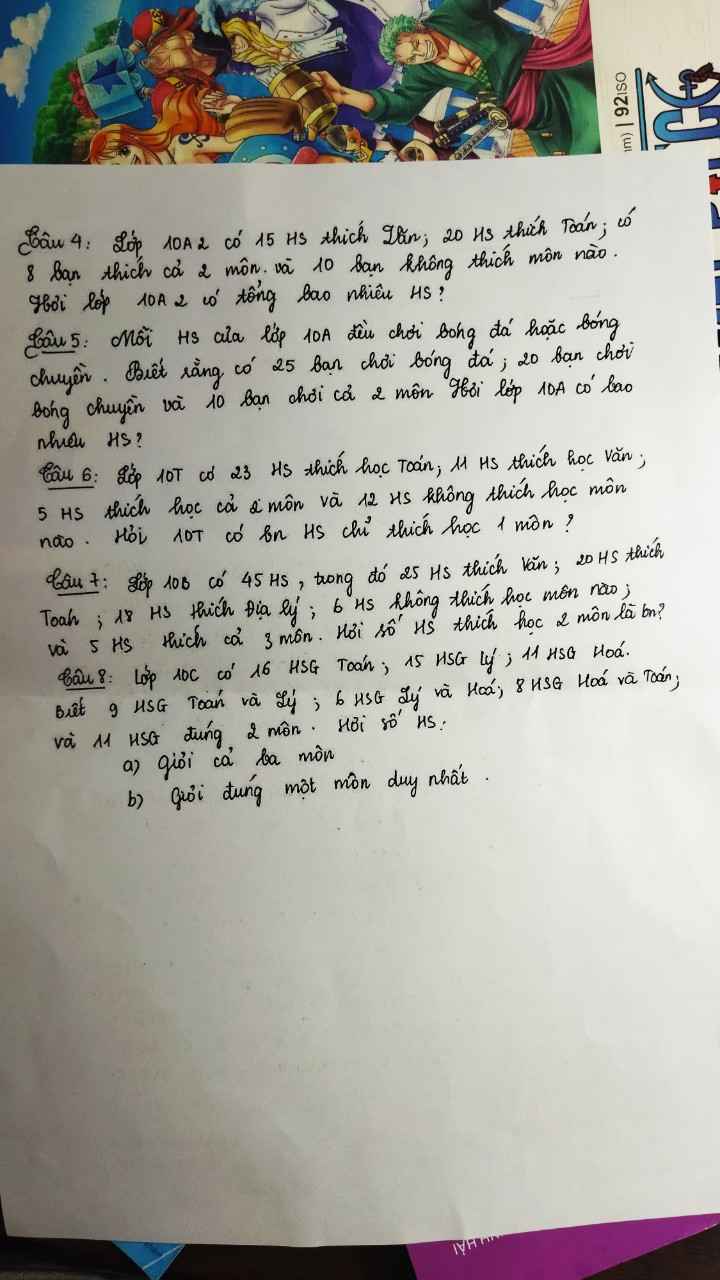 mm) | 92ISO
Câu 4: Lớp 10A2 có 15 HS thích Văn; 20 HS thích Toán; có
8 bạn thích cả 2 môn. và 10 bạn không thích môn nào.
Hỏi lớp 10A2 có tổng bao nhiêu HS?
Câu 5: Mỗi HS của lớp 10A đều chơi bóng đá hoặc bóng
chuyền. Biết rằng có 25 bạn chơi bóng đá; 20 bạn chơi
bóng chuyền và 10 bạn chơi cả 2 môn Hỏi lớp 10A có bao
nhiêu HS?
Câu 6: Lớp 10T có 23 HS thích học Toán; 11 HS thích học Văn;
5 HS thích học cả 2 môn và 12 HS không thích học môn
nào. Hỏi 10T có bn HS chỉ thích học 1 môn?
Câu 7: Lớp 10B có 45 HS, trong đó 25 HS thích Văn; 20 HS thích
Toán; 18 HS thích Địa lý; 6 HS không thích học môn nào;
và 5 HS thích cả 3 môn. Hỏi số HS thích học 2 môn là bn?
Câu 8: Lớp 10C có 16 HSG Toán; 15 HSG lý; 11 HSG Hoá.
Biết 9 HSG Toán và Lý; 6 HSG Lý và Hoá; 8 HSG Hoá và Toán;
và 11 HSG đúng 2 môn. Hỏi số HS:
a) Giỏi cả ba môn
b) Giỏi đúng một môn duy nhất.